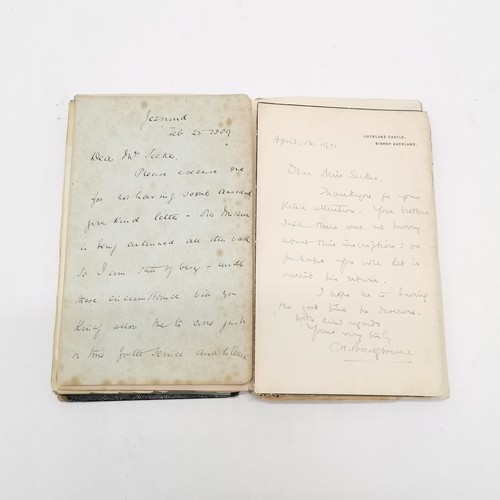 Jesmond
Feb 25 1889
Dear Mr
Please excuse me
for not having sooner
your kind letter - The Museum
is being enlarged all the
So I am busy - under
these circumstance will you
Kindly allow me to come just
in time for the Service and
AUCKLAND CASTLE,
BISHOP AUCKLAND.
April 16. 1901
Dear Miss
Thank you for your
kind attention. Your brother
there was no hurry
about this inscription: so
perhaps you will let it
await his return.
I hope he is having
the good time he deserves.
With kind regards
Yours very truly